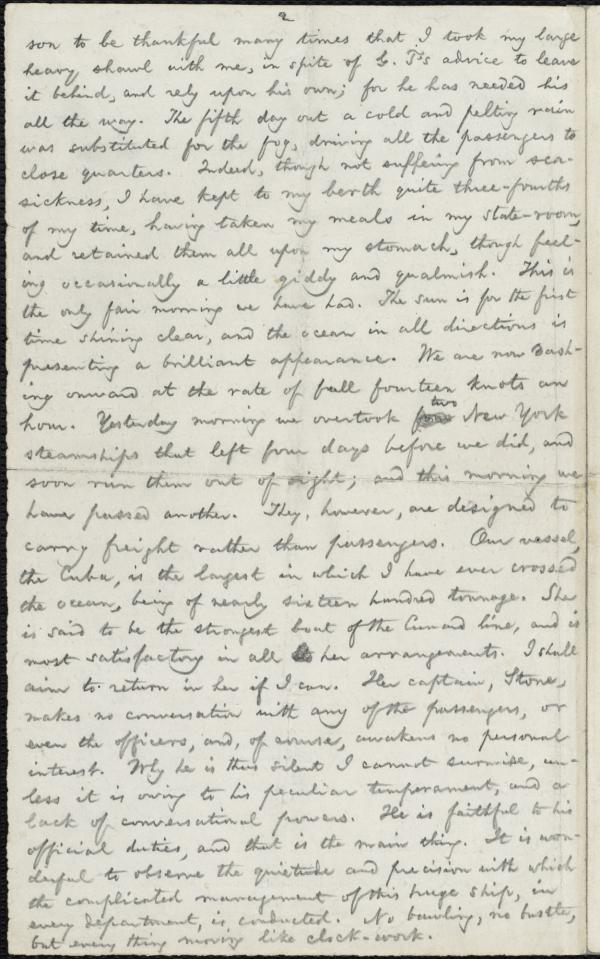 2
son to be thankful many times that I took my large
heavy shawl with me, in spite of G. T's advice to leave
it behind, and rely upon his own; for he has needed his
all the way. The fifth day out a cold and pelting rain
was substituted for the fog, driving all the passengers to
close quarters. Indeed, though not suffering from sea-
sickness, I have kept to my berth quite three-fourths
of my time, having taken my meals in my state-room,
and retained them all upon my stomach, though feel-
ing occasionally a little giddy and qualmish. This is
the only fair morning we have had. The sun is for the first
time shining clear, and the ocean in all directions is
presenting a brilliant appearance. We are now dash-
ing onward at the rate of full fourteen knots an
hour. Yesterday morning we overtook two New York
steamships that left four days before we did, and
soon run them out of sight; and this morning we
have passed another. They, however, are designed to
carry freight rather than passengers. Our vessel,
the Cuba, is the largest in which I have ever crossed
the ocean, being of nearly sixteen hundred tonnage. She
is said to be the strongest boat of the Cunard line, and is
most satisfactory in all her arrangements. I shall
aim to return in her if I can. Her captain, Stone,
makes no conversation with any of the passengers, or
even the officers, and, of course, awakens no personal
interest. Why he is thus silent I cannot surmise, un-
less it is owing to his peculiar temperament, and a
lack of conversational powers. He is faithful to his
official duties, and that is the main thing. It is won-
derful to observe the quietude and precision with which
the complicated management of this huge ship, in
every department, is conducted. No bawling, no bustle,
but every thing moving like clock-work.